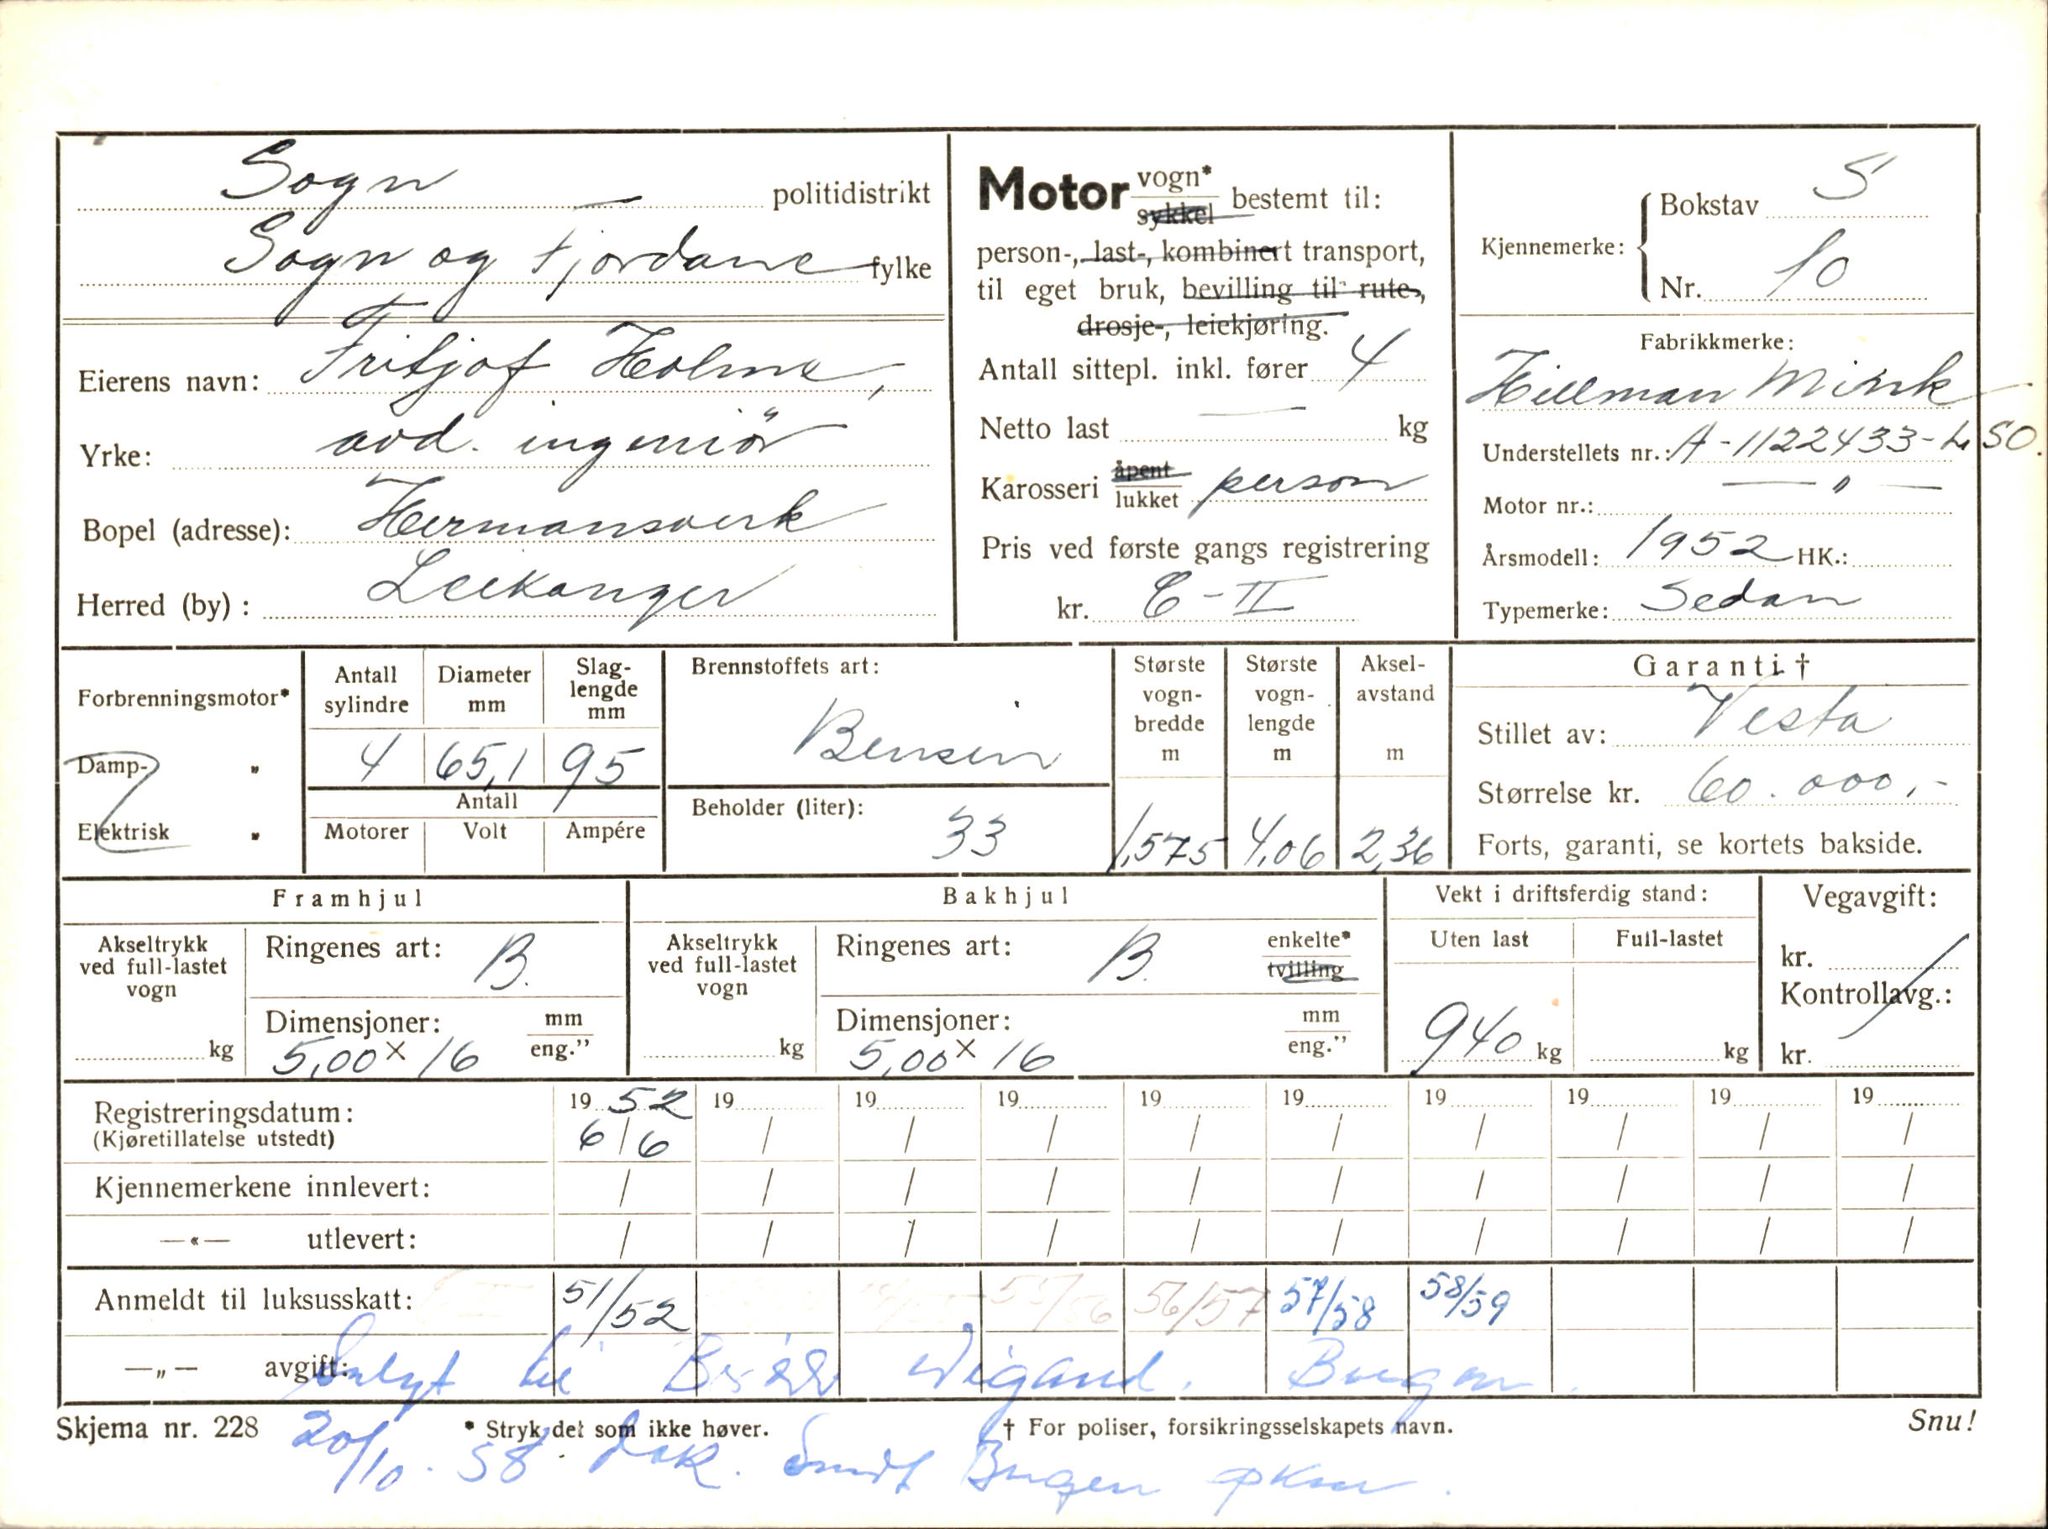 Sogn politidistrikt
Sogn og Fjordane fylke
Eierens navn: Fritjof Holme,
Yrke: avd. ingeniör
Bopel (adresse): Hermansverk
Herred (by): Leikanger
Motor vogn* sykkel bestemt til:
person-, last-, kombinert transport,
til eget bruk, bevilling til rute-,
drosje-, leiekjøring.
Antall sittepl. inkl. fører 4
Netto last — kg
Karosseri åpent lukket person
Pris ved første gangs registrering
kr. C-II
Kjennemerke: Bokstav S
Nr. 10
Fabrikkmerke:
Hillman Mink
Understellets nr.: A-1122433-L SO.
Motor nr.: — " —
Årsmodell: 1952 HK.:
Typemerke: Sedan
Forbrenningsmotor*
Damp- "
Elektrisk "
Antall sylindre Diameter mm Slaglengde mm
4 65,1 95
Antall
Motorer Volt Ampére
Brennstoffets art:
Bensin
Beholder (liter):
33
Største vognbredde m
1,575
Største vognlengde m
4,06
Akselavstand m
2,36
Garanti †
Stillet av: Vesta
Størrelse kr. 60.000,-
Forts, garanti, se kortets bakside.
Framhjul
Akseltrykk ved full-lastet vogn
kg
Ringenes art: B.
Dimensjoner: mm eng."
5,00 x 16
Bakhjul
Akseltrykk ved full-lastet vogn
kg
Ringenes art: B. enkelte* tvilling
Dimensjoner: mm eng."
5,00 x 16
Vekt i driftsferdig stand:
Uten last Full-lastet
940 kg kg
Vegavgift:
kr.
Kontrollavg.:
kr.
Registreringsdatum: 19 52 19 19 19 19 19 19 19 19 19
(Kjøretillatelse utstedt) 6/6 / / / / / / / / /
Kjennemerkene innlevert: / / / / / / / / / /
—«— utlevert: / / / / / / / / / /
Anmeldt til luksusskatt: 51/52 55/56 56/57 57/58 58/59
—„— avgift: Solgt til Wigand. Bergen.
Skjema nr. 228 * Stryk det som ikke høver. † For poliser, forsikringsselskapets navn. Snu!
20/10. 58. Sendt Bergen